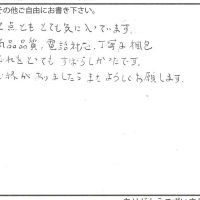 その他ご自由にお書き下さい。
2点ともとても気に入っています。
商品品質、電話対応、丁寧な梱包
どれをとってもすばらしかったです。
ご縁がありましたらまたよろしくお願いします。
ありがとうございました